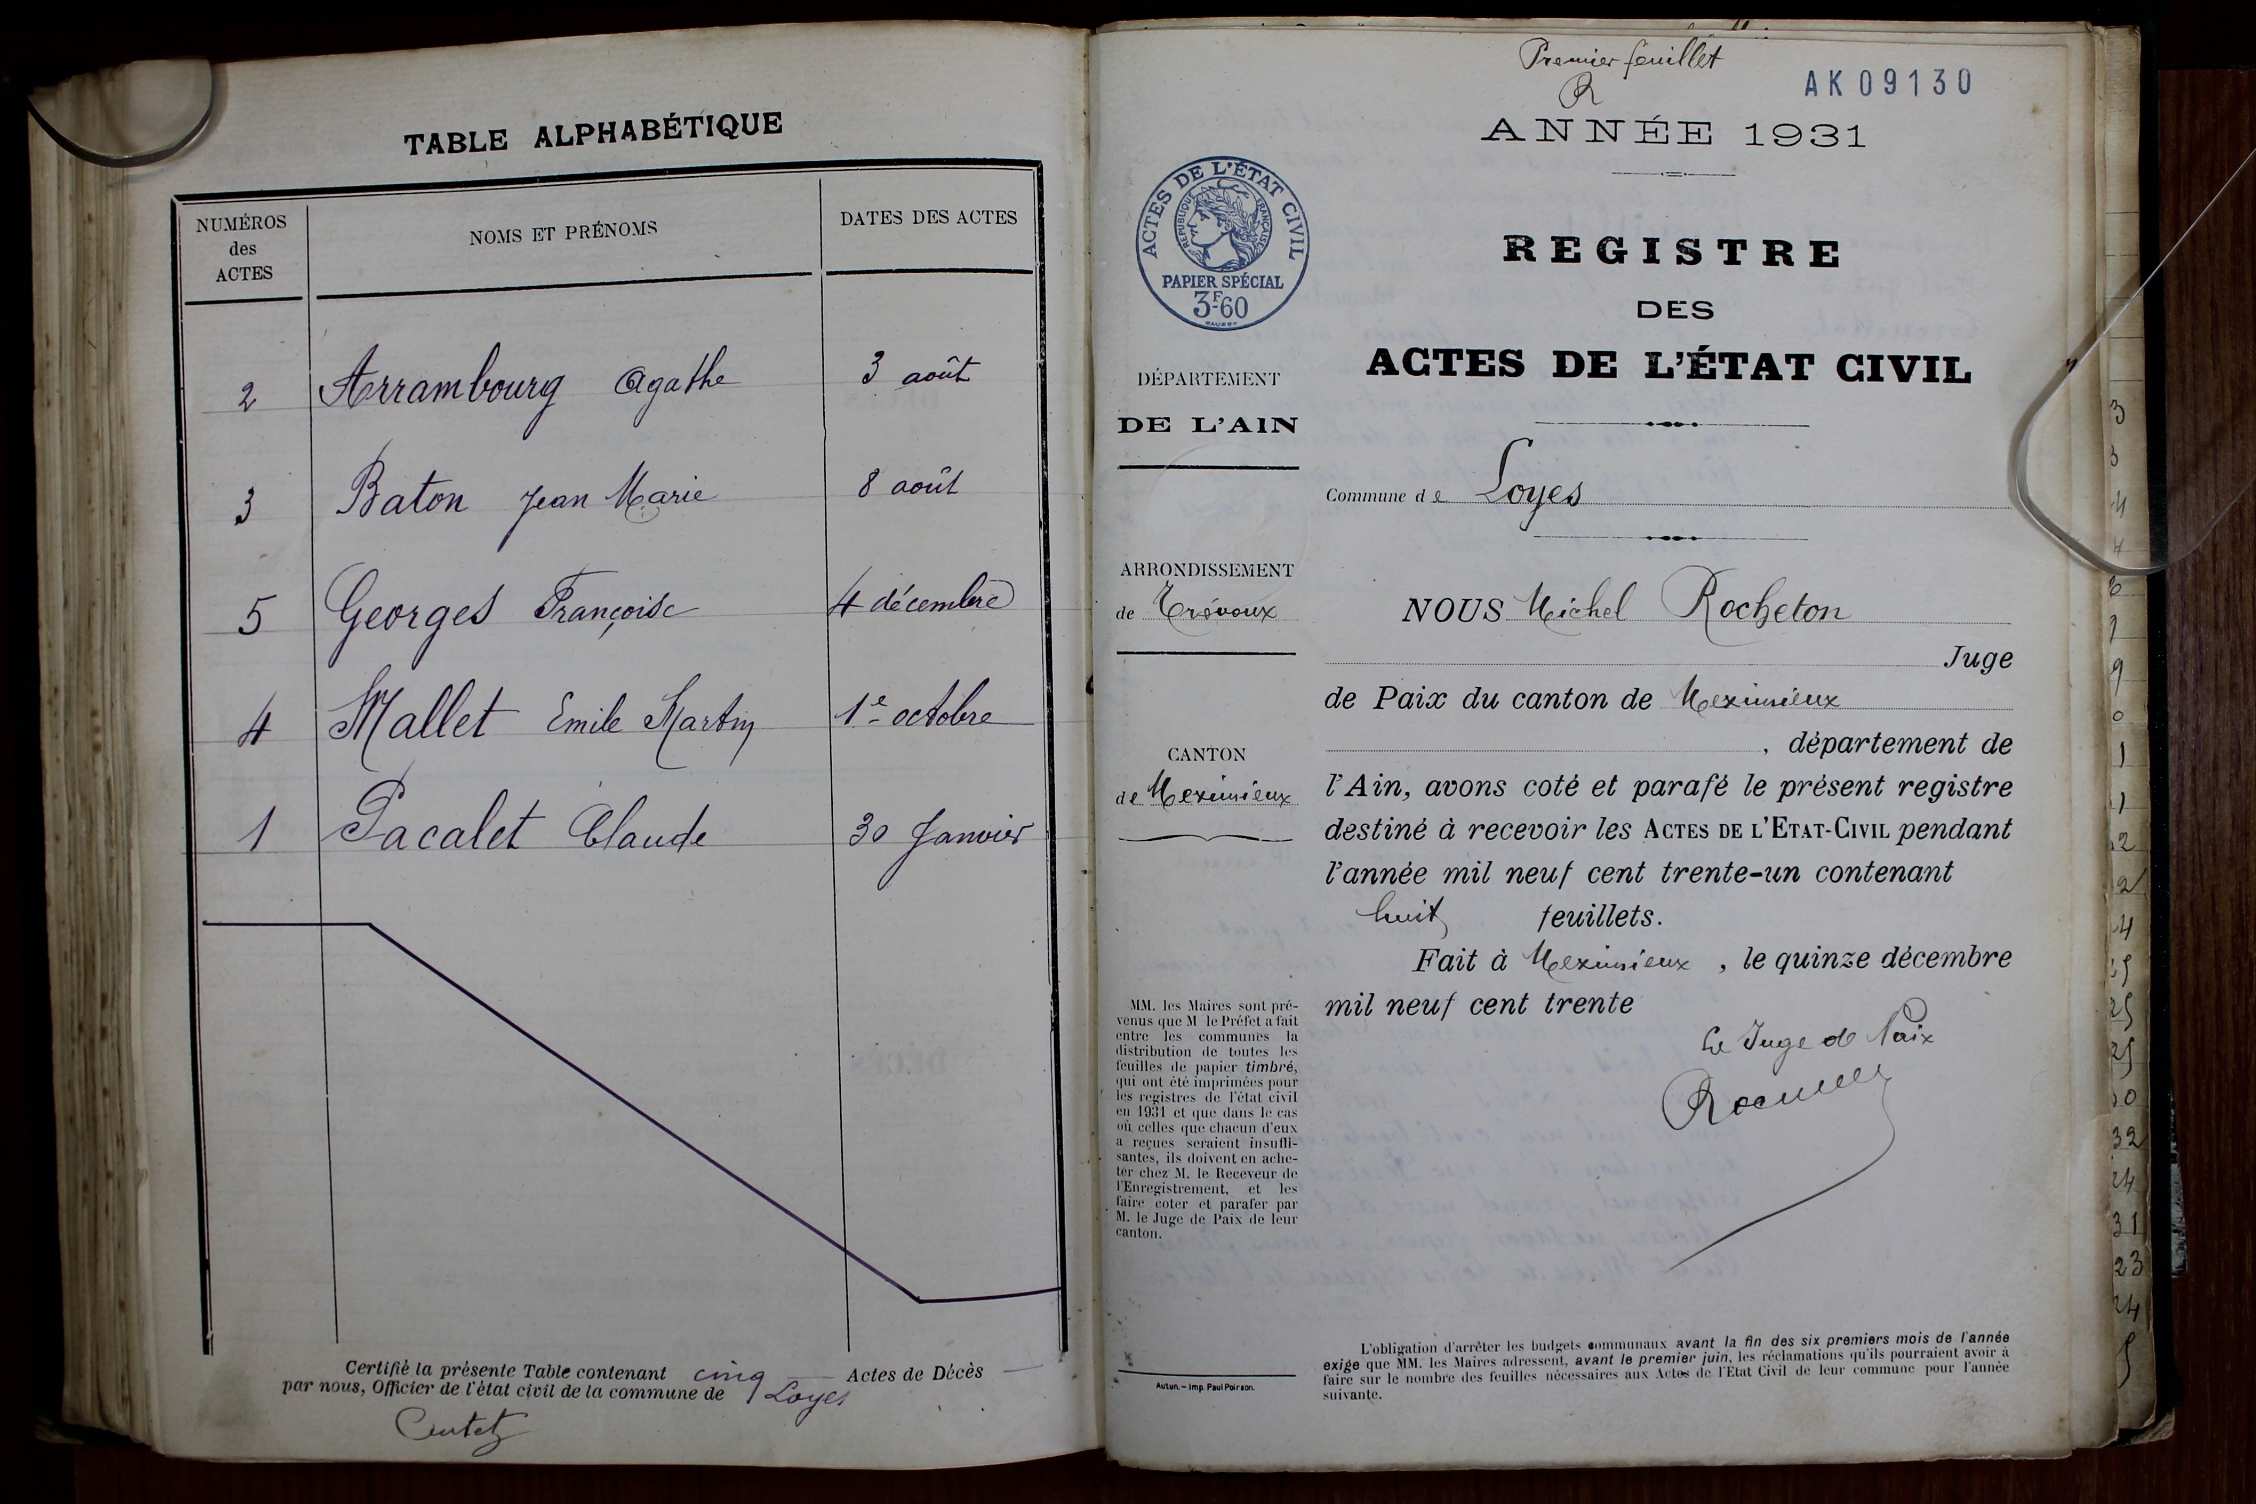 TABLE ALPHABÉTIQUE
NUMÉROS
des
ACTES
NOMS ET PRÉNOMS
DATES DES ACTES
2 Arrambourg Agathe 3 août
3 Baton Jean Marie 8 août
5 Georges Françoise 4 décembre
4 Mallet Emile Martin 1e octobre
1 Pacalet Claude 30 Janvier
Certifié la présente Table contenant cinq Actes de Décès
par nous, Officier de l'état civil de la commune de Loyes
Premier feuillet
R
AK09130
ANNÉE 1931
ACTES DE L'ÉTAT CIVIL
RÉPUBLIQUE FRANÇAISE
PAPIER SPÉCIAL
3F60
REGISTRE
DES
ACTES DE L'ÉTAT CIVIL
DÉPARTEMENT
DE L'AIN
Commune de Loyes
ARRONDISSEMENT
de Trévoux
CANTON
de Meximieux
NOUS Michel Rocheton
Juge
de Paix du canton de Meximieux
, département de
l'Ain, avons coté et parafé le présent registre
destiné à recevoir les ACTES DE L'ETAT-CIVIL pendant
l'année mil neuf cent trente-un contenant
huit feuillets.
Fait à Meximieux , le quinze décembre
mil neuf cent trente
Le Juge de Paix
MM. les Maires sont pré-
venus que M le Préfet a fait
entre les communes la
distribution de toutes les
feuilles de papier timbré,
qui ont été imprimées pour
les registres de l'état civil
en 1931 et que dans le cas
où celles que chacun d'eux
a reçues seraient insuffi-
santes, ils doivent en ache-
ter chez M. le Receveur de
l'Enregistrement, et les
faire coter et parafer par
M. le Juge de Paix de leur
canton.
Autun. – Imp. Paul Poirson.
L'obligation d'arrêter les budgets communaux avant la fin des six premiers mois de l'année
exige que MM. les Maires adressent, avant le premier juin, les réclamations qu'ils pourraient avoir à
faire sur le nombre des feuilles nécessaires aux Actes de l'Etat Civil de leur commune pour l'année
suivante.